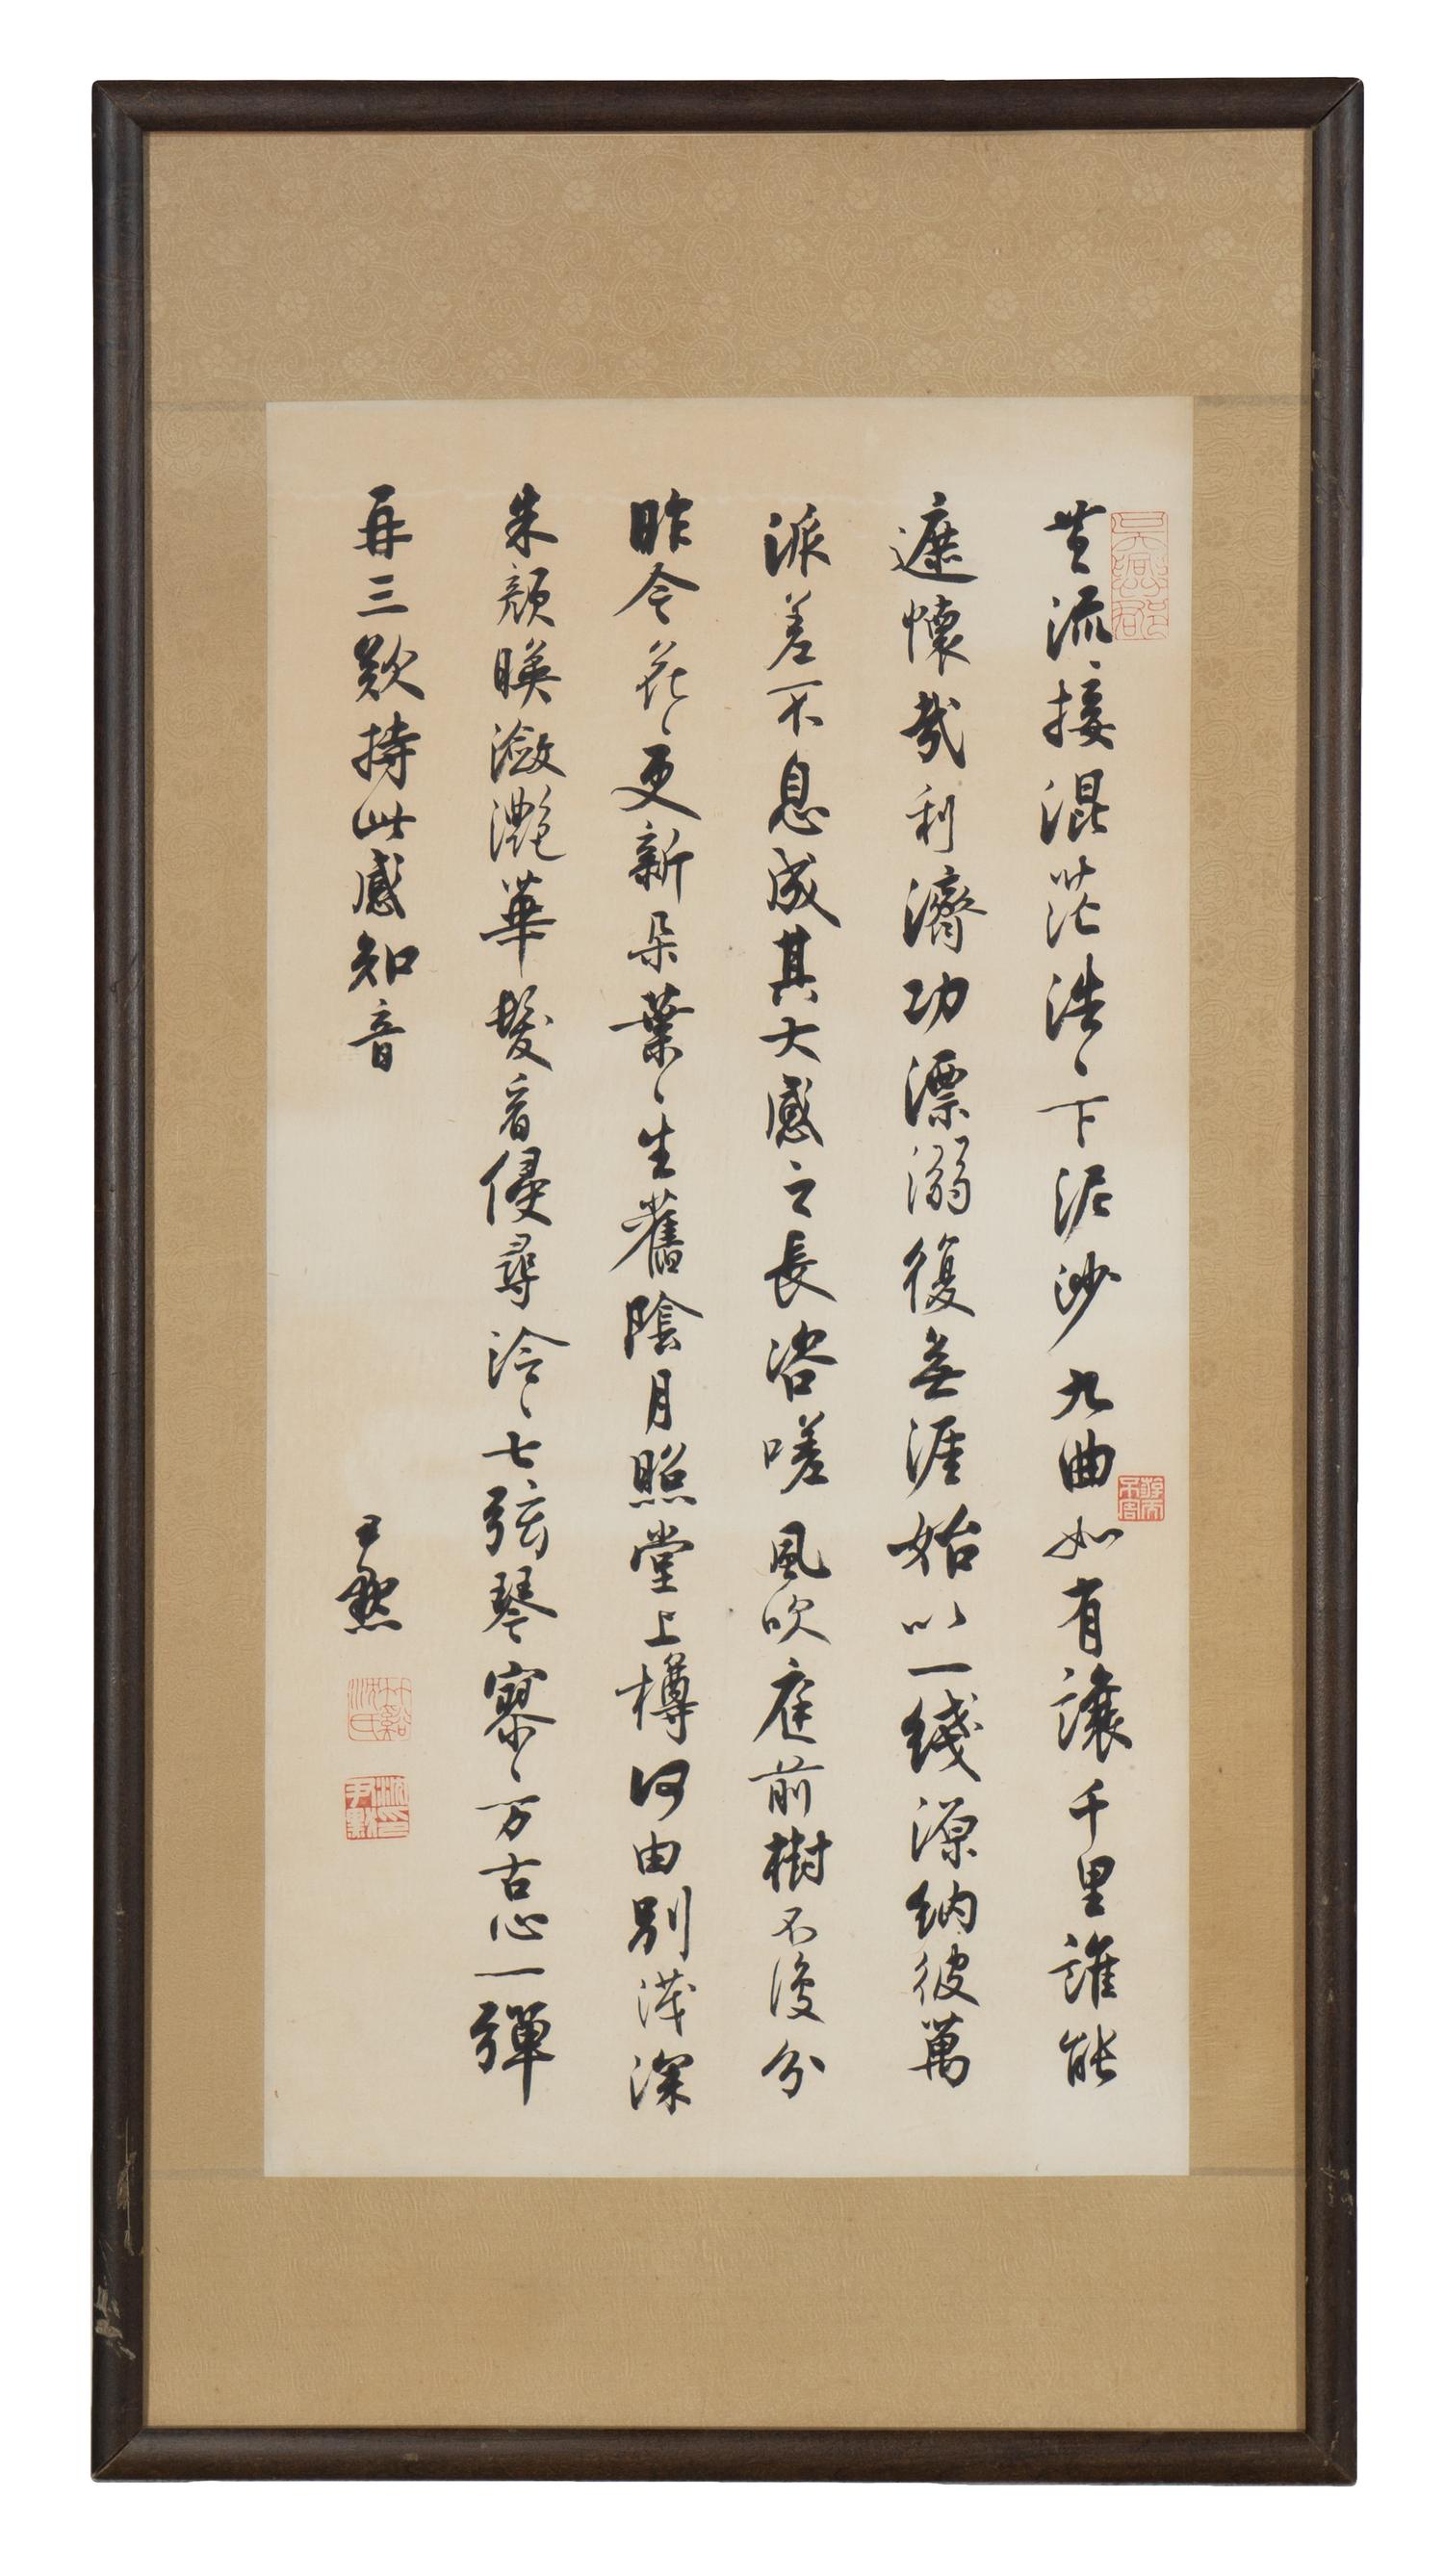 黄流々接混茫浩々下泥沙九曲如有讓千里誰能
遮懷哉利濟功漂溺復無涯始以一綫源納彼萬
派差不息成其大感之長咨嗟風吹庭前樹不復分
昨今花々更新朵葉々生舊陰月照堂上樽何由別淺深
朱顏暎瀲灧華髮看侵尋泠々七弦琴寥々万古心一彈
再三歎持此感知音
尹默
竹谿沈氏
沈尹默印